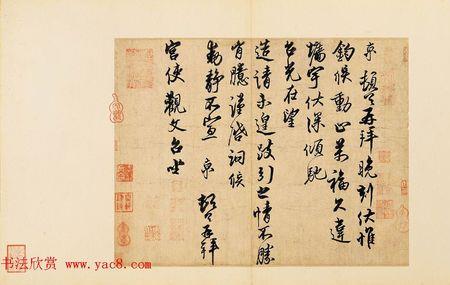 京 頓首再拜晚刻伏惟
鈞候動止萬福久違
牆宇伏深傾馳
台光在望
造請未遑跂引之情不勝
胷臆謹啓詞候
動靜不宣 京 頓首再拜
宮使觀文台坐
书法欣赏 www.yac8.com